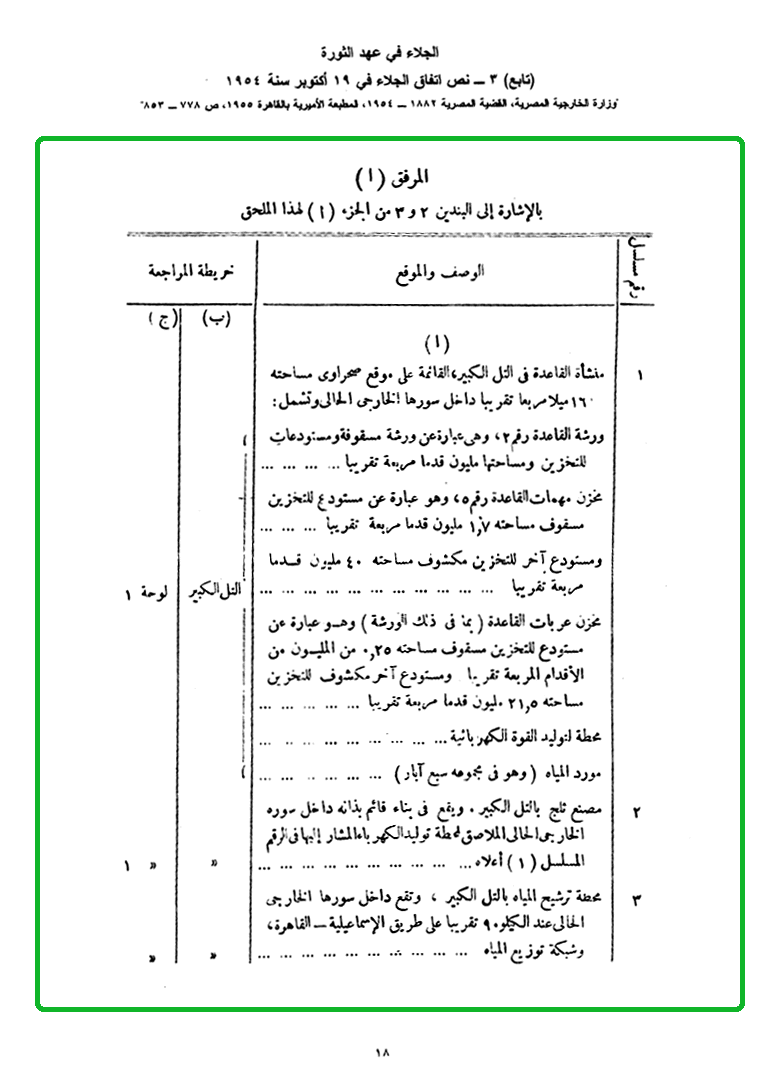 الجلاء في عهد الثورة
(تابع) ٣ ــ نص اتفاق الجلاء في ١٩ أكتوبر سنة ١٩٥٤
"وزارة الخارجية المصرية، القضية المصرية ١٨٨٢ ــ ١٩٥٤، المطبعة الأميرية بالقاهرة ١٩٥٥، ص ٧٧٨ ــ ٨٥٣"
المرفق (١)
بالإشارة إلى البندين ٢ و ٣ من الجزء (١) لهذا الملحق
رقم مسلسل
الوصف والموقع
خريطة المراجعة
(ب) (ج)
(١)
١ منشأة القاعدة فى التل الكبير، القائمة على موقع صحراوى مساحته
١٦٠ ميلا مربعا تقريبا داخل سورها الخارجى الحالى وتشمل:
ورشة القاعدة رقم ٢، وهى عبارة عن ورشة مسقوفة ومستودعات
للتخزين ومساحتها مليون قدما مربعة تقريبا ... ... ... ...
مخزن مهمات القاعدة رقم ٥، وهو عبارة عن مستودع للتخزين
مسقوف مساحته ١,٧ مليون قدما مربعة تقريبا ... ... ...
ومستودع آخر للتخزين مكشوف مساحته ٤٠ مليون قدما
مربعة تقريبا ... ... ... ... ... ... ... ... ... ... ... التل الكبير لوحة ١
مخزن عربات القاعدة (بما فى ذلك الورشة) وهو عبارة عن
مستودع للتخزين مسقوف مساحته ٠,٢٥ من المليون من
الأقدام المربعة تقريبا ومستودع آخر مكشوف للتخزين
مساحته ٢١,٥ مليون قدما مربعة تقريبا ... ... ... ... ...
محطة لتوليد القوة الكهربائية ... ... ... ... ... ... ... ... ...
مورد المياه (وهو فى مجموعه سبع آبار) ... ... ... ... ... ...
٢ مصنع ثلج بالتل الكبير. ويقع فى بناء قائم بذاته داخل سوره
الخارجى الحالى الملاصق لمحطة توليد الكهرباء المشار إليها فى الرقم
المسلسل (١) أعلاه ... ... ... ... ... ... ... ... ... ... » » ١
٣ محطة ترشيح المياه بالتل الكبير، وتقع داخل سورها الخارجى
الحالى عند الكيلو ٩٠ تقريبا على طريق الإسماعيلية ــ القاهرة،
وشبكة توزيع المياه ... ... ... ... ... ... ... ... ... ... » »
١٨